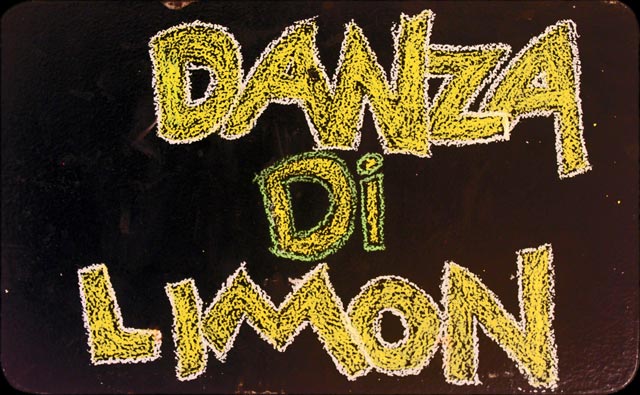 DANZA
Di
LIMON